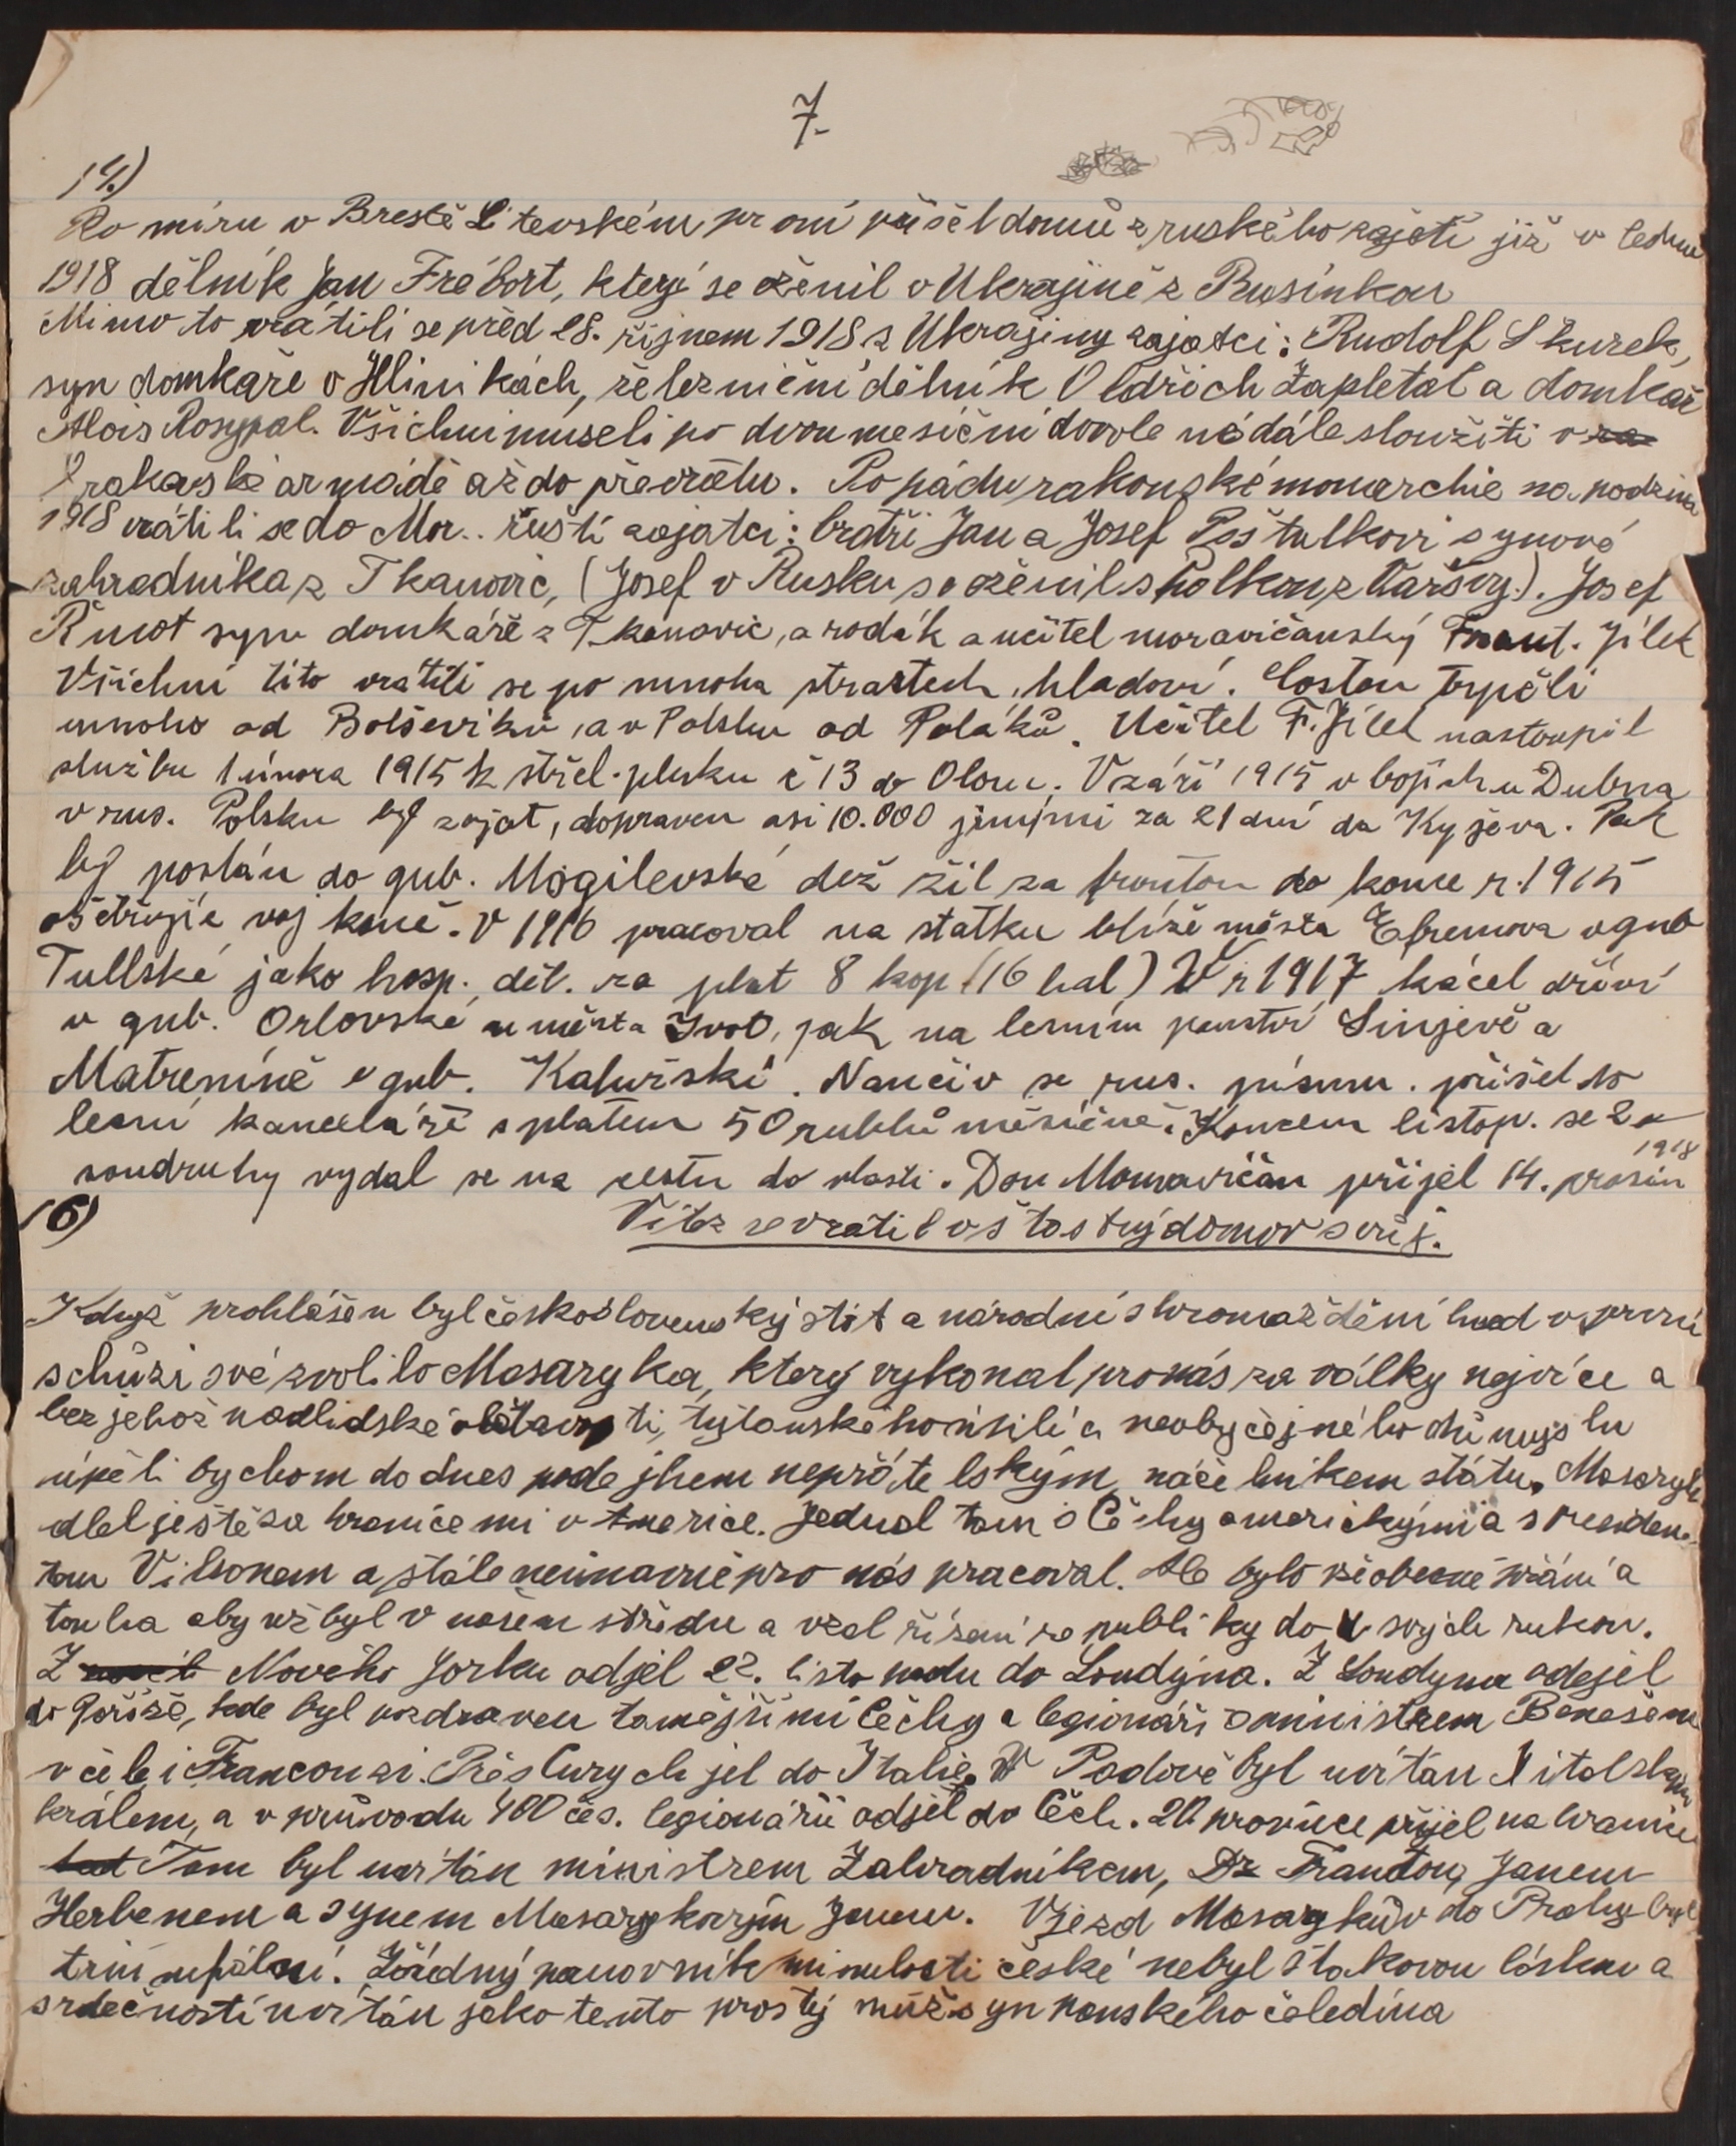 7.
14.)
Po míru v Brestě Litevském první přišel domů z ruského zajetí již v lednu
1918 dělník Jan Frébort, který se oženil v Ukrajině z Rusínkou
Mimo to vrátili se před 28. říjnem 1918 z Ukrajiny zajatci: Rudolf Skurek,
syn domkaře v Hlinikách, železniční dělník Oldřich Zapletal a domkař
Alois Rosypal. Všichni museli po dvouměsíční dovole nadále sloužiti v ra
rakouské armádě až do převratu. Po pádu rakouské monarchie na podzim
1918 vrátili se do Mor. ruští zajatci: bratři Jan a Josef Poštulkovi synové
zahradníka z Tkanovic, (Josef v Rusku se oženil s Polkou z Varšavy.). Josef
Rmot syn domkáře z Tkanovic, a rodák a učitel moravičanský Frant. Jílek
Všichni tito vrátili se po mnoha strastech, hladoví. Cestou trpěli
mnoho od Bolševiků, a v Polsku od Poláků. Učitel F. Jílek nastoupil
službu 1 února 1915 k střel. pluku č 13 do Olom. V září 1915 v bojích u Dubna
v rus. Polsku byl zajat, dopraven asi 10.000 jinými za 21 dní do Kyjeva. Pak
byl poslán do gub. Mogilevské dež žil za frontou do konce r. 1915
ošetřujíc voj koně. V 1916 pracoval na statku blíže města Efremova v gub
Tullské jako hosp. děl. za plat 8 kop (16 hal) V r 1917 kácel dříví
v gub. Orlovské u města Ivot, pak na lesním panství Sinjevě a
Matreníně v gub. Kalužské. Naučiv se rus. písmu. přišel do
lesní kanceláře s platem 50 rublů měsíčně. Koncem listop. se 2a
soudruhy vydal se na cestu do vlasti. Dou Mouravičan přijel 14. prosin 1918
16)
Vítěz se vrátil v šťastný domov svůj.
Když prohlášen byl československý stát a národní shromáždění hned v první
schůzi své zvolilo Masaryka, který vykonal pro nás za války nejvíce a
bez jehož nadlidské obětavosti, tytanského úsilí a neobyčejného důmyslu
úpěli bychom dodnes pode jhem nepřátelským, náčelníkem státu. Masaryk
dlel ještě za hranicemi v Americe. Jednal tam s Čechy americkými a s presiden-
tem Vilsonem a stále neúnavně pro nás pracoval. Ale bylo všeobecné přání a
touha aby už byl v našem středu a vzal řízení republiky do svých rukou.
Z Nového Jorku odjel 22. listopadu do Londýna. Z Londyna odejel
do Paříže, kde byl pozdraven tamějšími Čechy a legionáři s ministrem Benešem
v čele i Francouzi. Přes Curych jel do Italie. V Padově byl uvítán italským
králem, a v průvodu 400 čes. legionářů odjel do Čech. 20 prosince přijel na hranice
Tam byl uvítán ministrem Zahradníkem, Dr Frantou, Janem
Herbenem a synem Masarykovým Janem. Vjezd Masarykův do Prahy byl
triumfální. Žádný panovník minulosti české nebyl s takovou láskou a
srdečností uvítán jako tento prostý muž syn panského čeledína